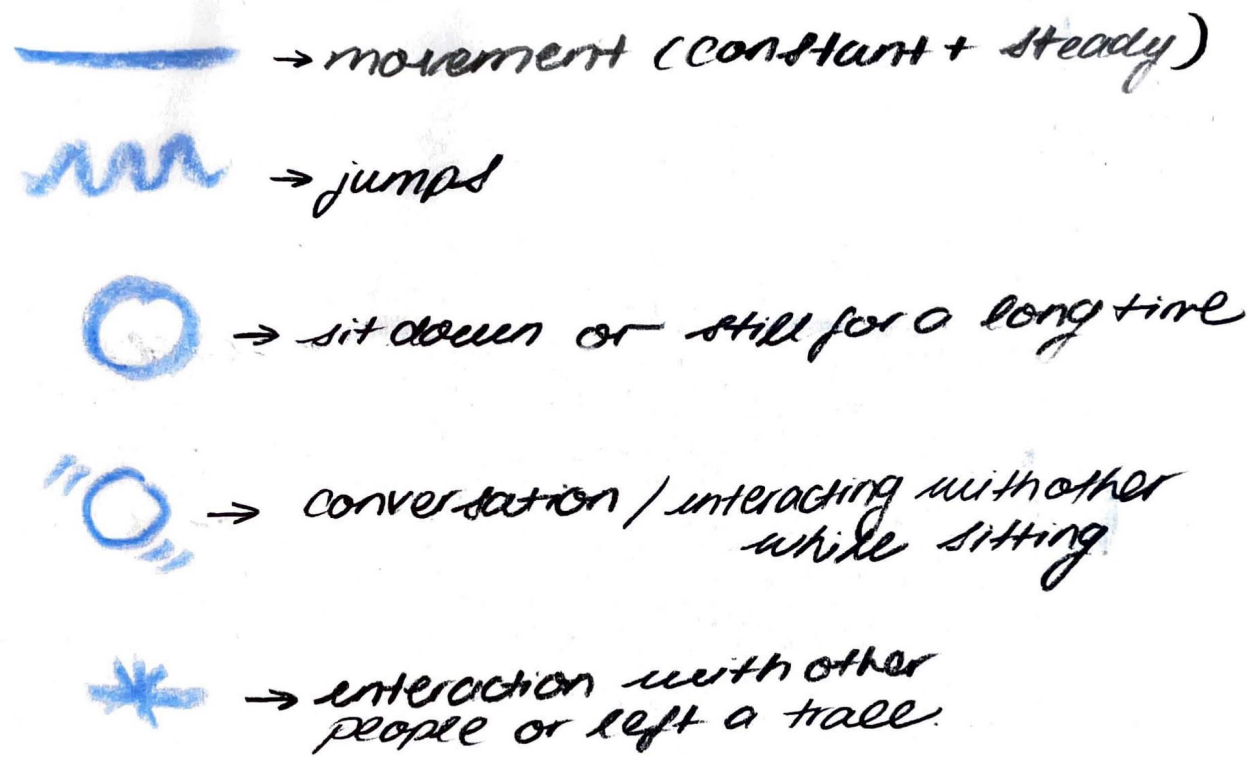 → movement (constant + steady)
→ jumps
→ sit down or still for a long time
→ conversation / interacting with other
while sitting
→ interaction with other
people or left a trace.